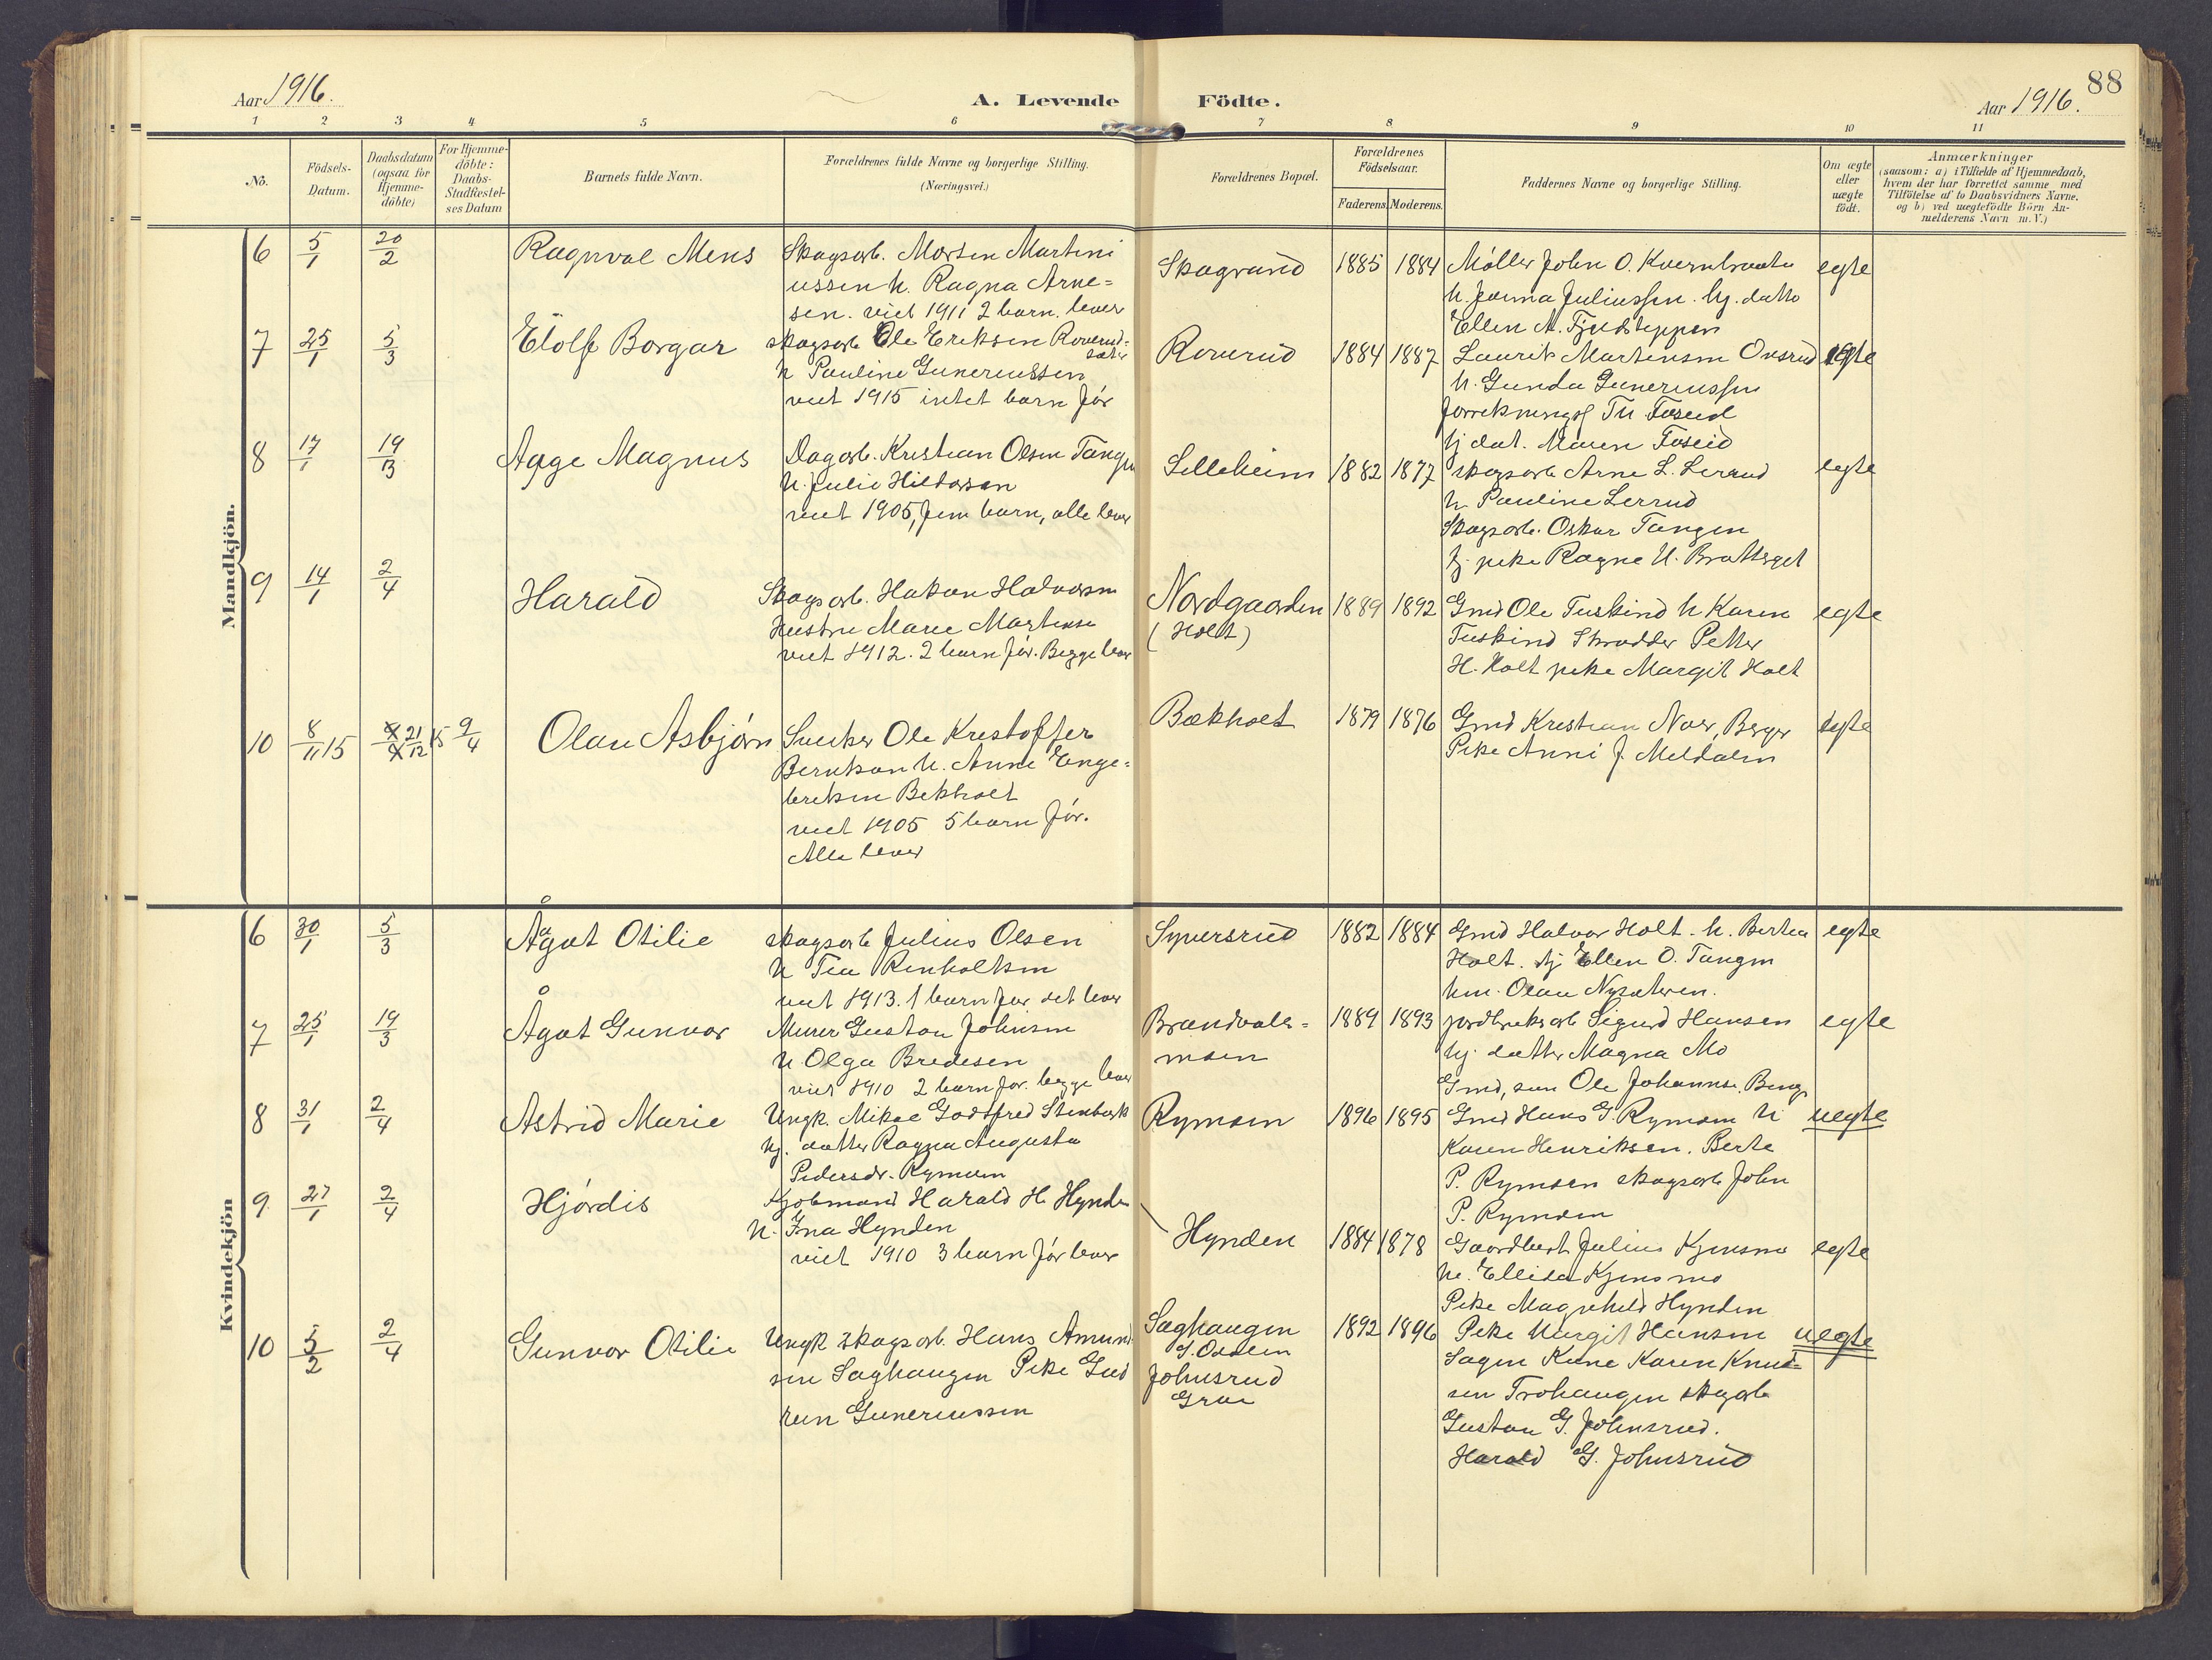 88
Aar 1916.
A. Levende Födte.
Aar 1916.
1 2 3 4 5 6 7 8 9 10 11
No.
Födsels-Datum.
Daabsdatum (ogsaa for Hjemme-döbte)
For Hjemme-döbte: Daabs-Stadfæstel-ses Datum
Barnets fulde Navn.
Forældrenes fulde Navne og borgerlige Stilling.
(Næringsvei.)
Forældrenes Bopæl.
Forældrenes Födselsaar.
Faderens. Moderens.
Faddernes Navne og borgerlige Stilling.
Om ægte eller uægte födt.
Anmærkninger
(saasom: a) i Tilfælde af Hjemmedaab,
hvem der har forrettet samme med
Tilföielse af to Daabsvidners Navne.
og b) ved uægtefödte Börn An-
melderens Navn m. V.)
Mandkjön.
6 5/1 20/2 Ragnval Mens
Skogsarb. Morten Martini
ussen h. Ragna Arne=
sen. viet 1911 2 barn. lever
Skogrund 1885 1884
Møller John O. Kvernbraaten
h. Jorma Juliussen. hj. datto
Ellen M. Fjeldsteppen
egte
7 25/1 5/3 Elolf Borgar
skogsarb Ole Eriksen Roverud-
sæter
h Pauline Guneriussen
viet 1915 intet barn før
Roverud 1884 1887
Laurits Martinsen Ovsrud
h. Gunda Guneriussen
forretningsf Th. Foseid
hj dat. Maren Foseid
egte
8 17/1 19/3 Aage Magnus
Dagarb. Kristian Olsen Tangen
h. Julie Hildorsen
viet 1905, fem barn, alle lever
Lilleheim 1882 1877
skogsarb Arne L. Lerrud
h. Pauline Lerrud
Skogsarb. Oskar Tangen
hj. pike Ragne H. Bratberget
egte
9 14/1 2/4 Harald
Skogsarb. Hakon Halvorsen
Hustru Marie Martinsen
viet 1912. 2 barn før. Begge lever
Nordgaarden
(Holt)
1889 1892
Gmd Ole Tuskind h Karen
Tuskind Skrædder Petter
H. Holt pike Margit Holt
egte
10 8/11 15 21/12 15 9/4 Olav Asbjørn
Snekker Ole Kristoffer
Berntsen h. Anne Enge=
bretsen Bekholt
viet 1905 5 barn før.
Alle lever
Bækholt 1879 1876
Gmd Kristian Noer, Berger
Pike Anni J. Meldalen
egte
Kvindekjön
6 30/1 5/3 Ågot Otilie
skogsarb Julius Olsen
h Tea Renholtsen
viet 1913. 1 barn før det lever
Syversrud 1882 1884
Gmd Halvor Holt. h. Berthea
Holt. hj Ellen O. Tangen
hm. Olau Nysæteren.
egte
7 25/1 19/3 Ågot Gunvor
Murer Gustav Johnsen
h Olga Bredesen
viet 1910 2 barn før. begge lever
Brandvals=
moen
1889 1893
jordbruksarb Sigurd Hansen
hj. datter Magna Mo
Gmd, søn Ole Johannse. Berg
egte
8 31/1 2/4 Astrid Marie
Ungk. Mikael Godtfred Stenberk
hj. datter Ragna Augusta
Pedersdr. Rymoen
Rymoen 1896 1895
Gmd Hans G. Rymoen h
Karen Henriksen. Berte
P. Rymoen skogsarb John
P. Rymoen
uegte
9 27/1 2/4 Hjørdis
Kjøbmand Harald H. Hynden
h. Ina Hynden
viet 1910 3 barn før lever
Hynden 1884 1878
Gaardbest Julius Kjensmo
h. Ellida Kjensmo
Pike Magnhild Hynden
egte
10 5/2 2/4 Gunvor Otilie
Ungk skogsarb. Hans Amund
sen Saghaugen Pike Gud
run Guneriussen
Saghaugen
S. Odalen
Johnsrud
Grue
1892 1896
Pike Margit Hansen
Sagen Kone Karen Knud=
sen Trohaugen skogarb
Gustav G. Johnsrud.
Harald G. Johnsrud
uegte